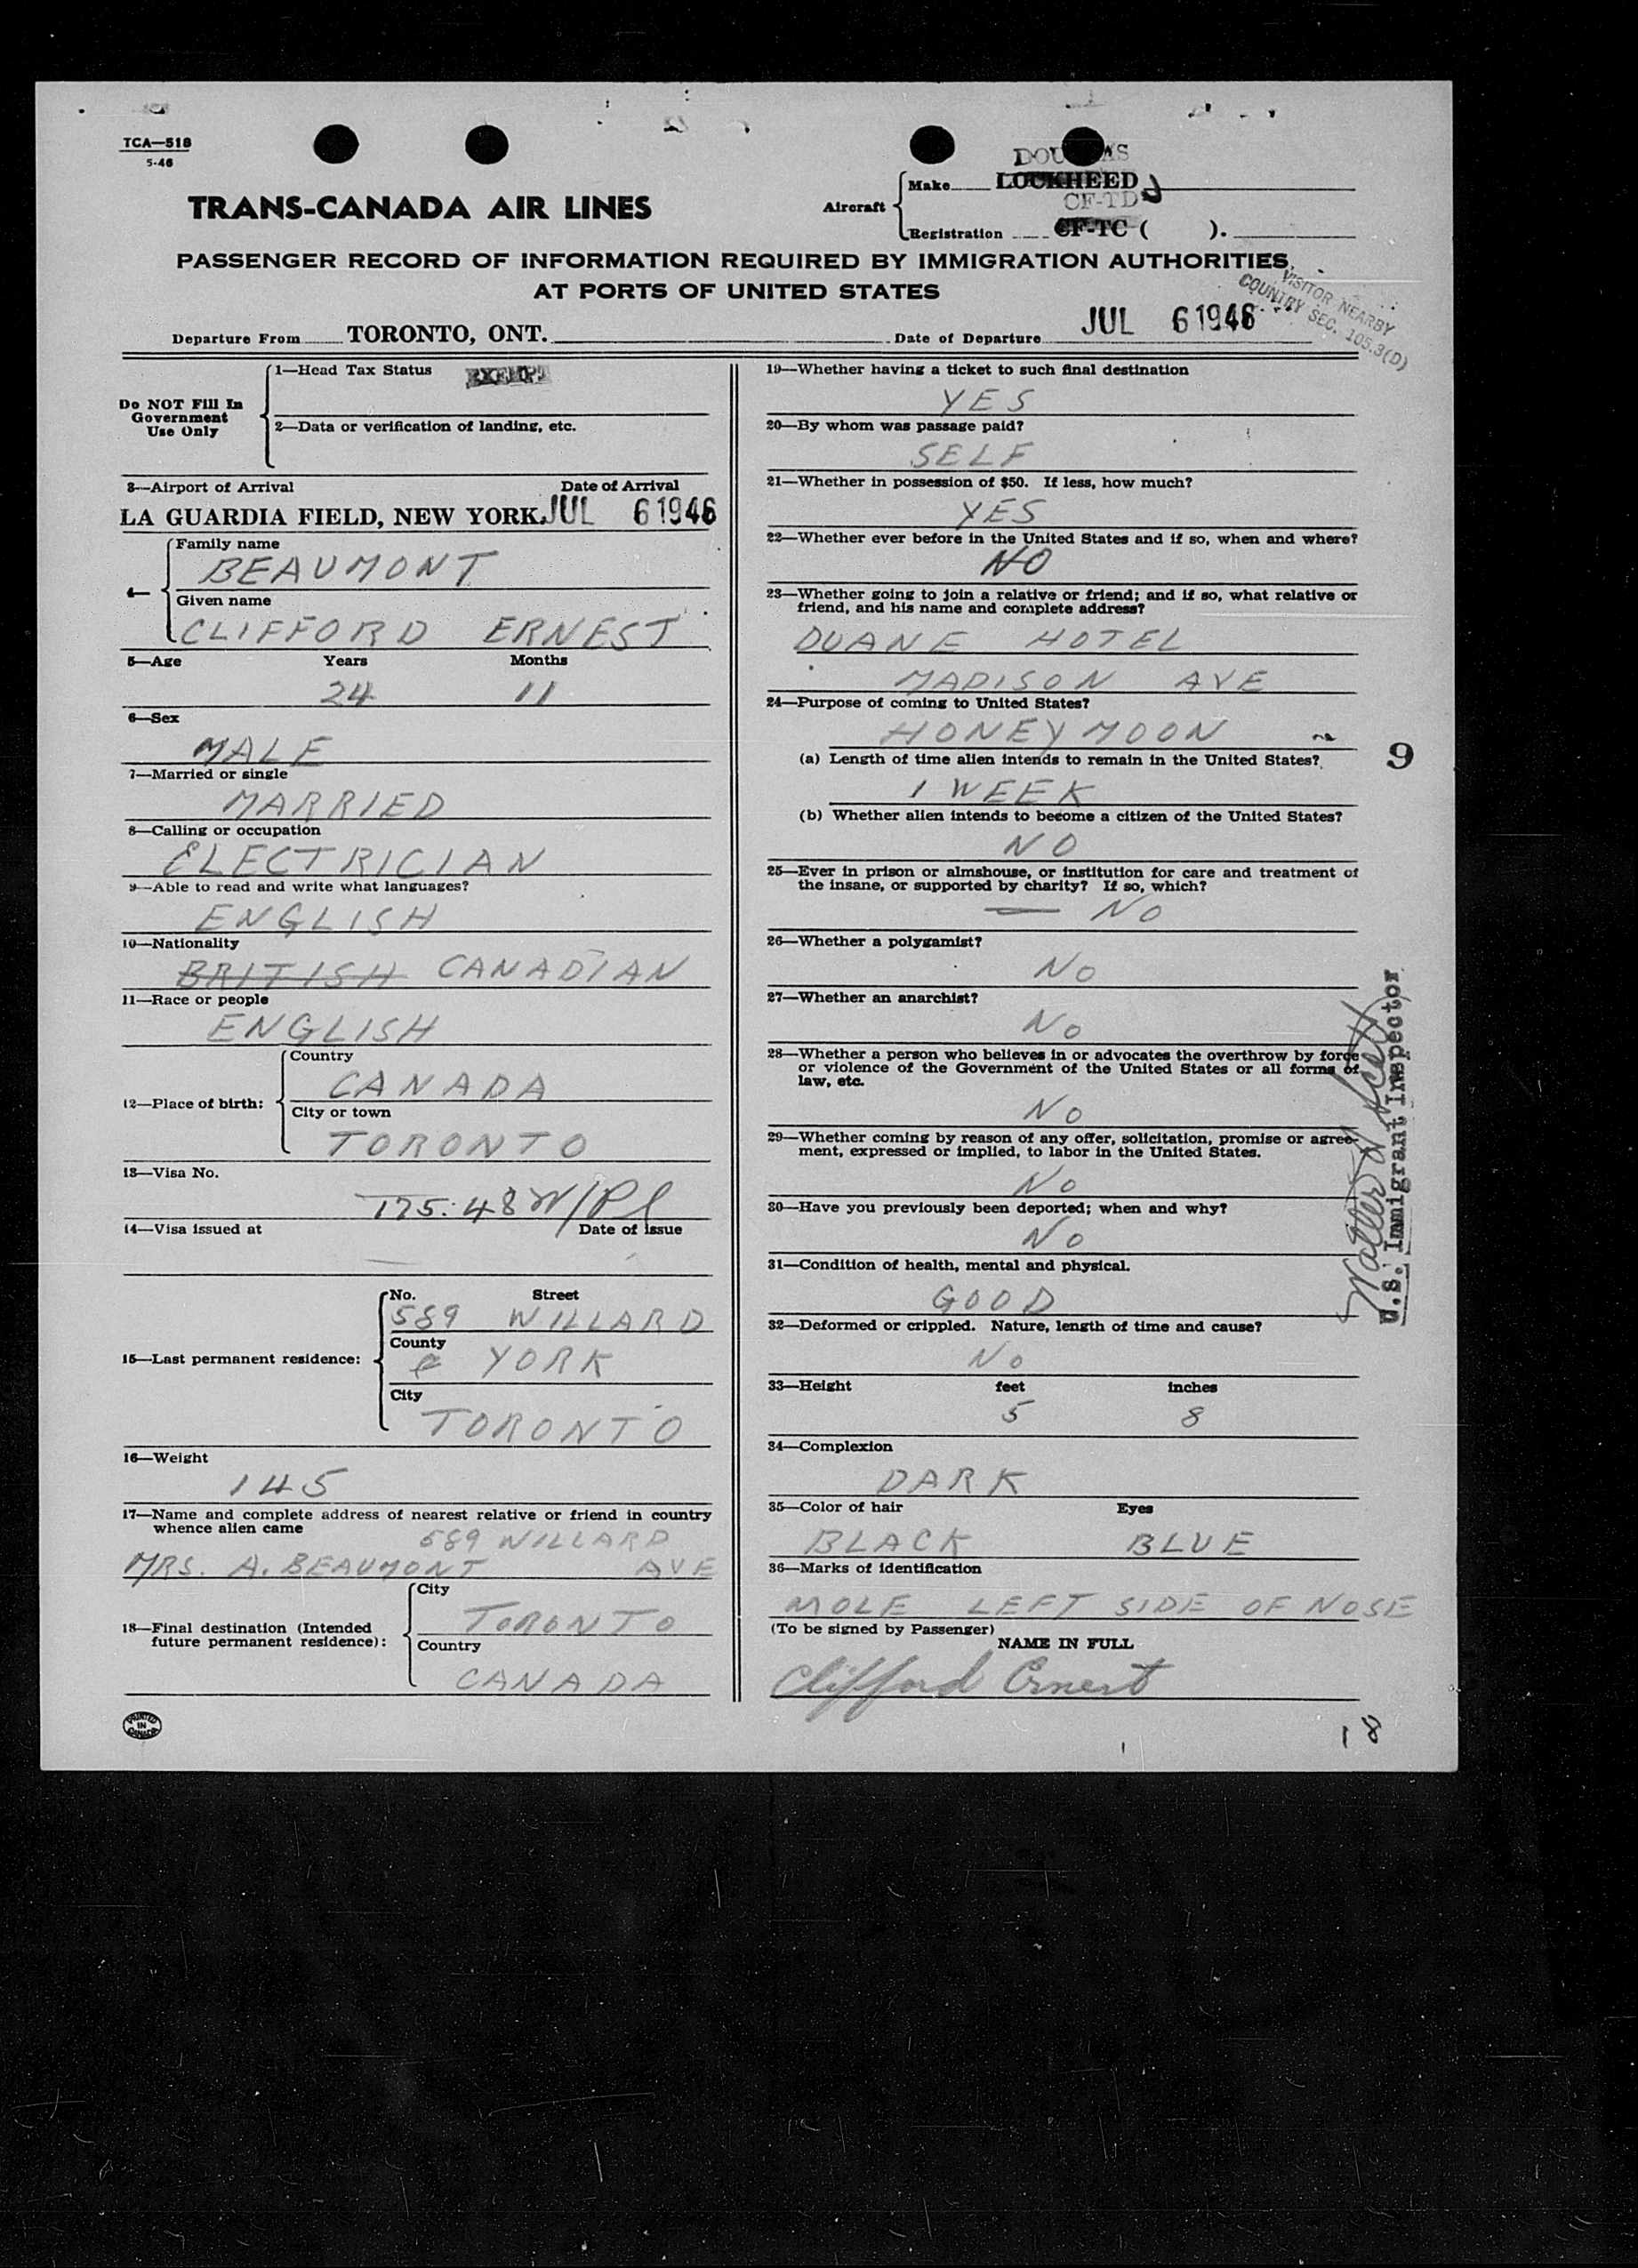 TCA—518
5-46
TRANS-CANADA AIR LINES
Aircraft
Make
LOCKHEED
CF-TD
Registration
CF-TC ( ).
PASSENGER RECORD OF INFORMATION REQUIRED BY IMMIGRATION AUTHORITIES
AT PORTS OF UNITED STATES
VISITOR NEARBY
COUNTRY SEC. 105.3(D)
Departure From TORONTO, ONT. Date of Departure JUL 6 1946
Do NOT Fill In
Government
Use Only
1—Head Tax Status EXEMPT
2—Data or verification of landing, etc.
3—Airport of Arrival Date of Arrival
LA GUARDIA FIELD, NEW YORK. JUL 6 1946
4—
Family name
BEAUMONT
Given name
CLIFFORD ERNEST
5—Age Years Months
24 11
6—Sex
MALE
7—Married or single
MARRIED
8—Calling or occupation
ELECTRICIAN
9—Able to read and write what languages?
ENGLISH
10—Nationality
BRITISH CANADIAN
11—Race or people
ENGLISH
12—Place of birth:
Country
CANADA
City or town
TORONTO
13—Visa No.
175.48
14—Visa issued at Date of issue
15—Last permanent residence:
No. Street
589 WILLARD
County
YORK
City
TORONTO
16—Weight
145
17—Name and complete address of nearest relative or friend in country
whence alien came
589 WILLARD
MRS. A. BEAUMONT AVE
18—Final destination (Intended
future permanent residence):
City
TORONTO
Country
CANADA
PRINTED
IN
CANADA
19—Whether having a ticket to such final destination
YES
20—By whom was passage paid?
SELF
21—Whether in possession of $50. If less, how much?
YES
22—Whether ever before in the United States and if so, when and where?
NO
23—Whether going to join a relative or friend; and if so, what relative or
friend, and his name and complete address?
DUANE HOTEL
MADISON AVE
24—Purpose of coming to United States?
HONEYMOON
(a) Length of time alien intends to remain in the United States?
1 WEEK
(b) Whether alien intends to become a citizen of the United States?
NO
25—Ever in prison or almshouse, or institution for care and treatment of
the insane, or supported by charity? If so, which?
— NO
26—Whether a polygamist?
NO
27—Whether an anarchist?
NO
28—Whether a person who believes in or advocates the overthrow by force
or violence of the Government of the United States or all forms of
law, etc.
NO
29—Whether coming by reason of any offer, solicitation, promise or agree-
ment, expressed or implied, to labor in the United States.
NO
30—Have you previously been deported; when and why?
NO
31—Condition of health, mental and physical.
GOOD
32—Deformed or crippled. Nature, length of time and cause?
NO
33—Height feet inches
5 8
34—Complexion
DARK
35—Color of hair Eyes
BLACK BLUE
36—Marks of identification
MOLE LEFT SIDE OF NOSE
(To be signed by Passenger)
NAME IN FULL
Clifford Ernest
9
U.S. Immigrant Inspector
18